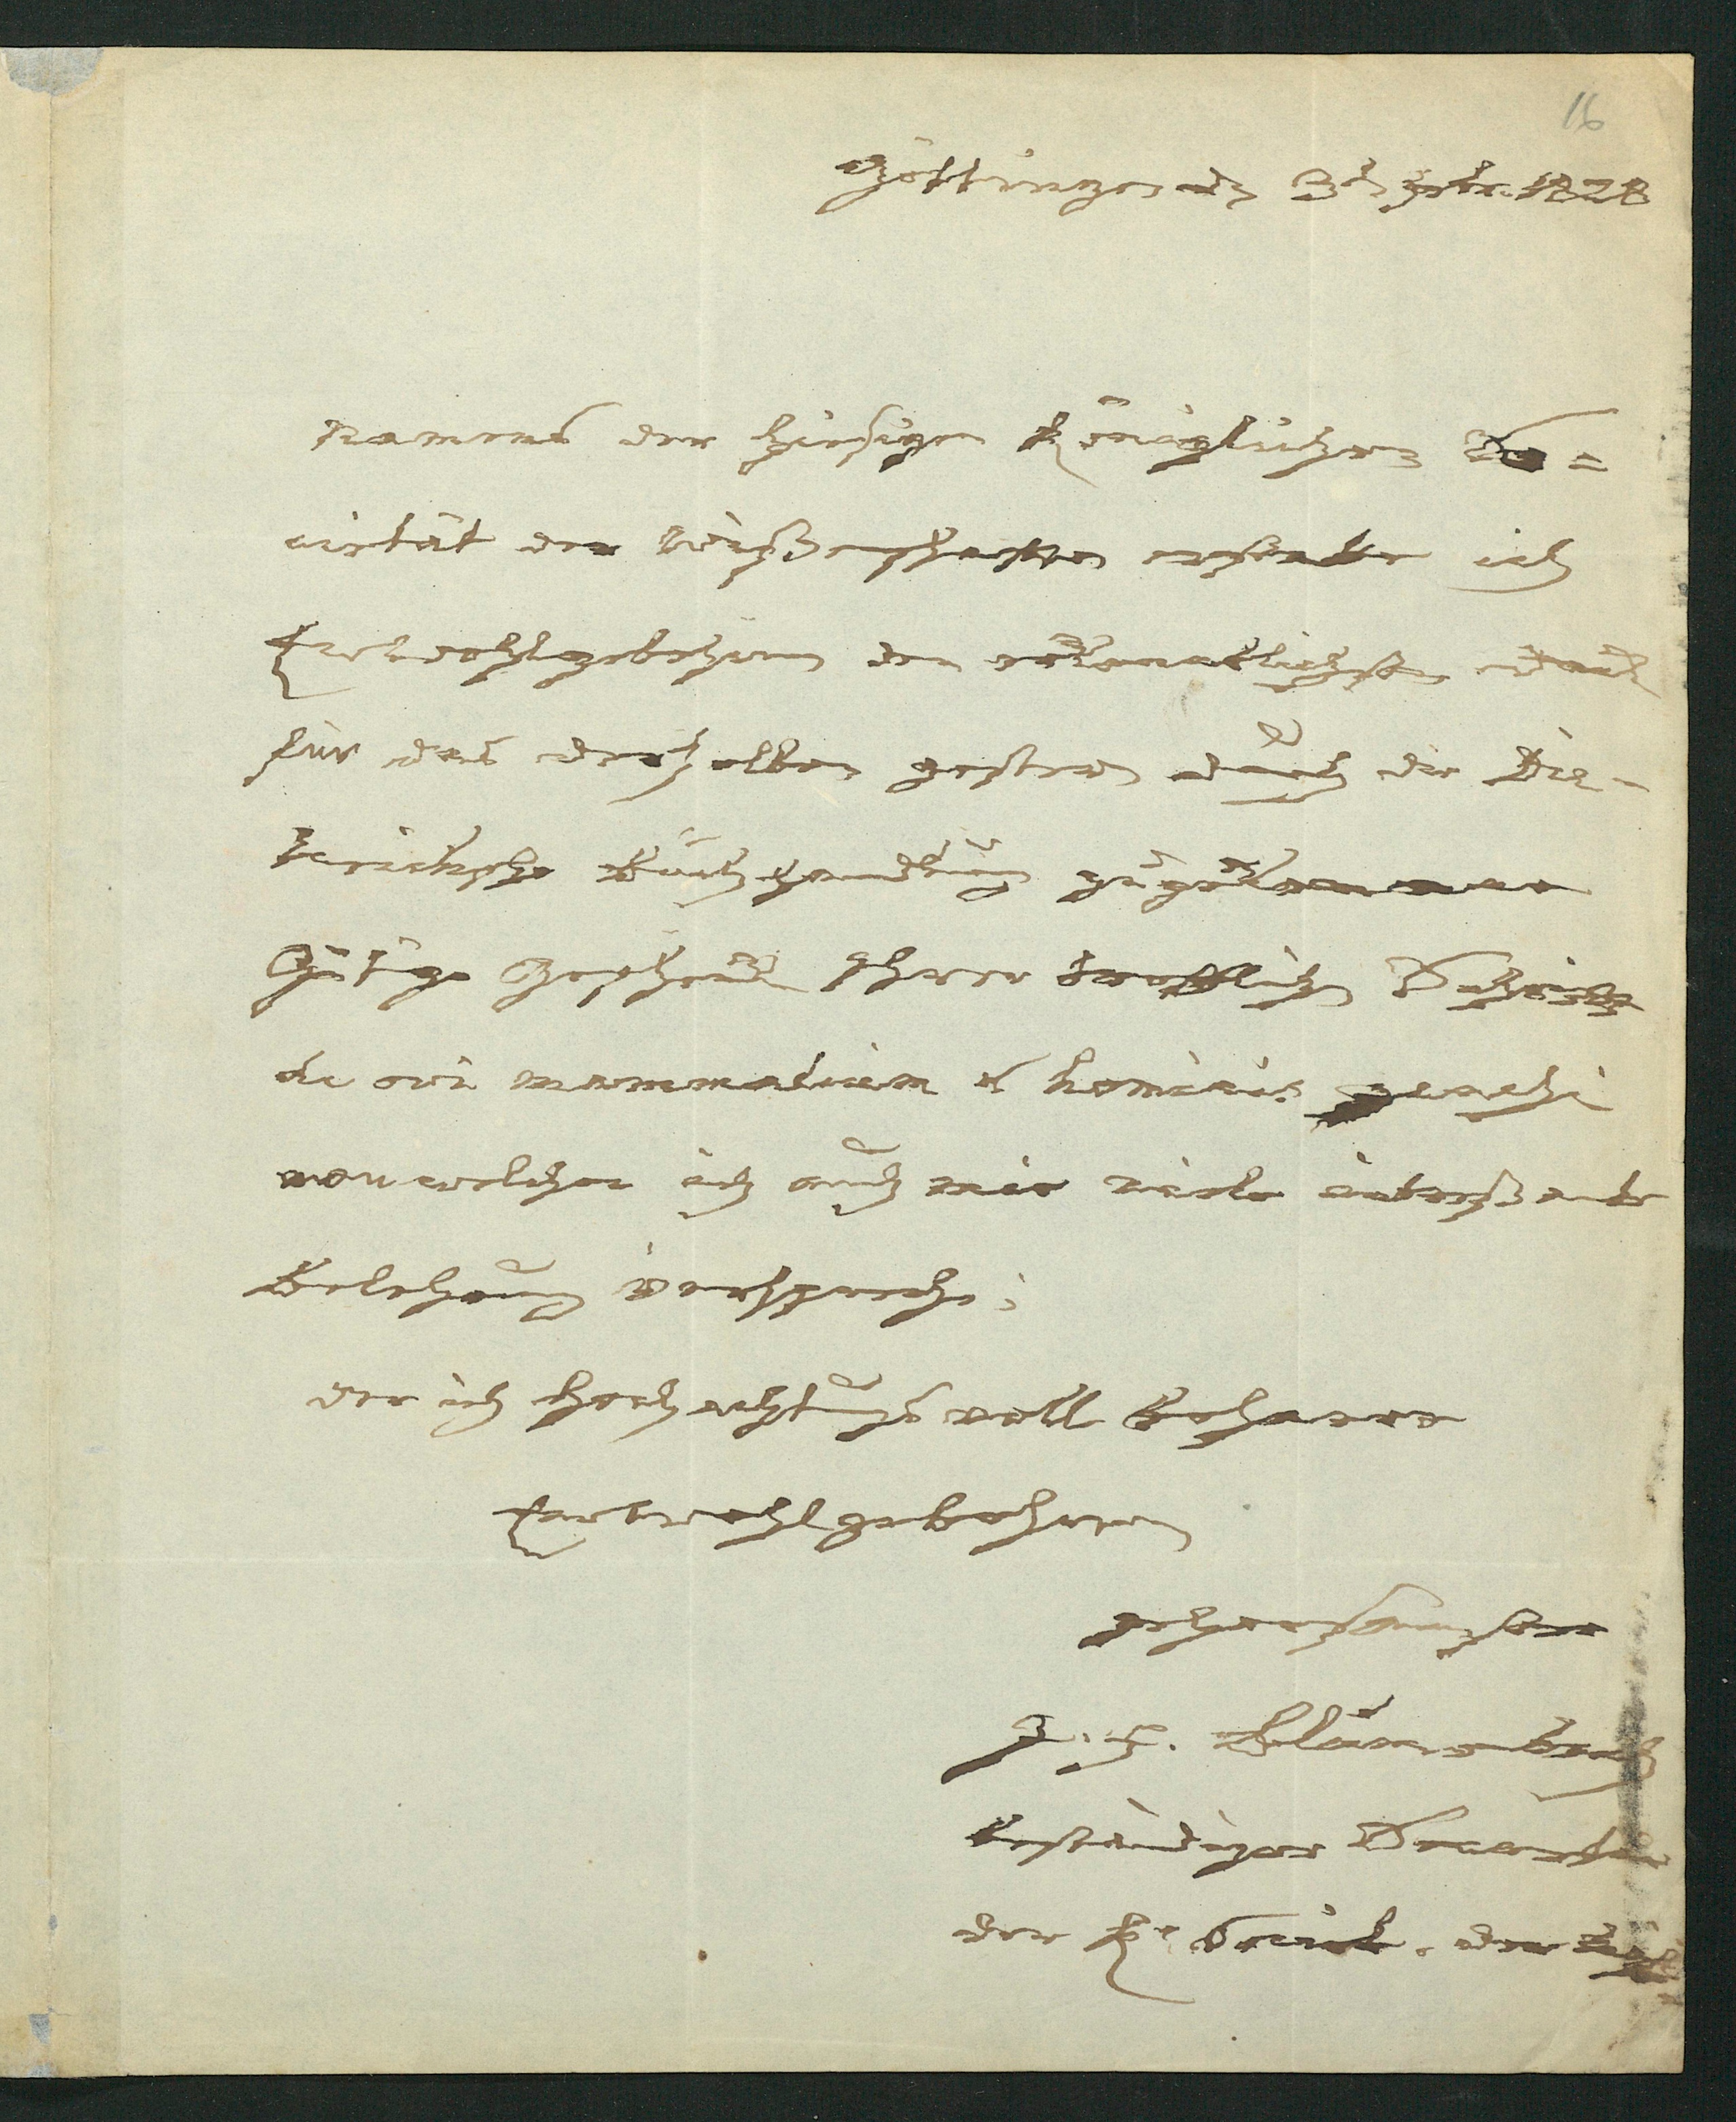 16
Göttingen den 3ten 1828
Namens der hiesigen Königlichen So=
cietät der Wißenschaften erstatte ich
Ew wohlgebohren den erkenntlichsten Dank
für das derselben gestern durch die Die-
terichsche Buchhandlung zugekommene
Gütige Geschenk Ihrer trefflichen Schrift
de ovi mammalium et hominis genesi
von welcher ich auch mir viele interessante
Belehrung verspreche;
der ich hochachtungsvoll beharre
Ew wohlgebohren
gehorsamster
J. F. Blumenbach
beständiger Secretär
der K. Societ. der Wiss